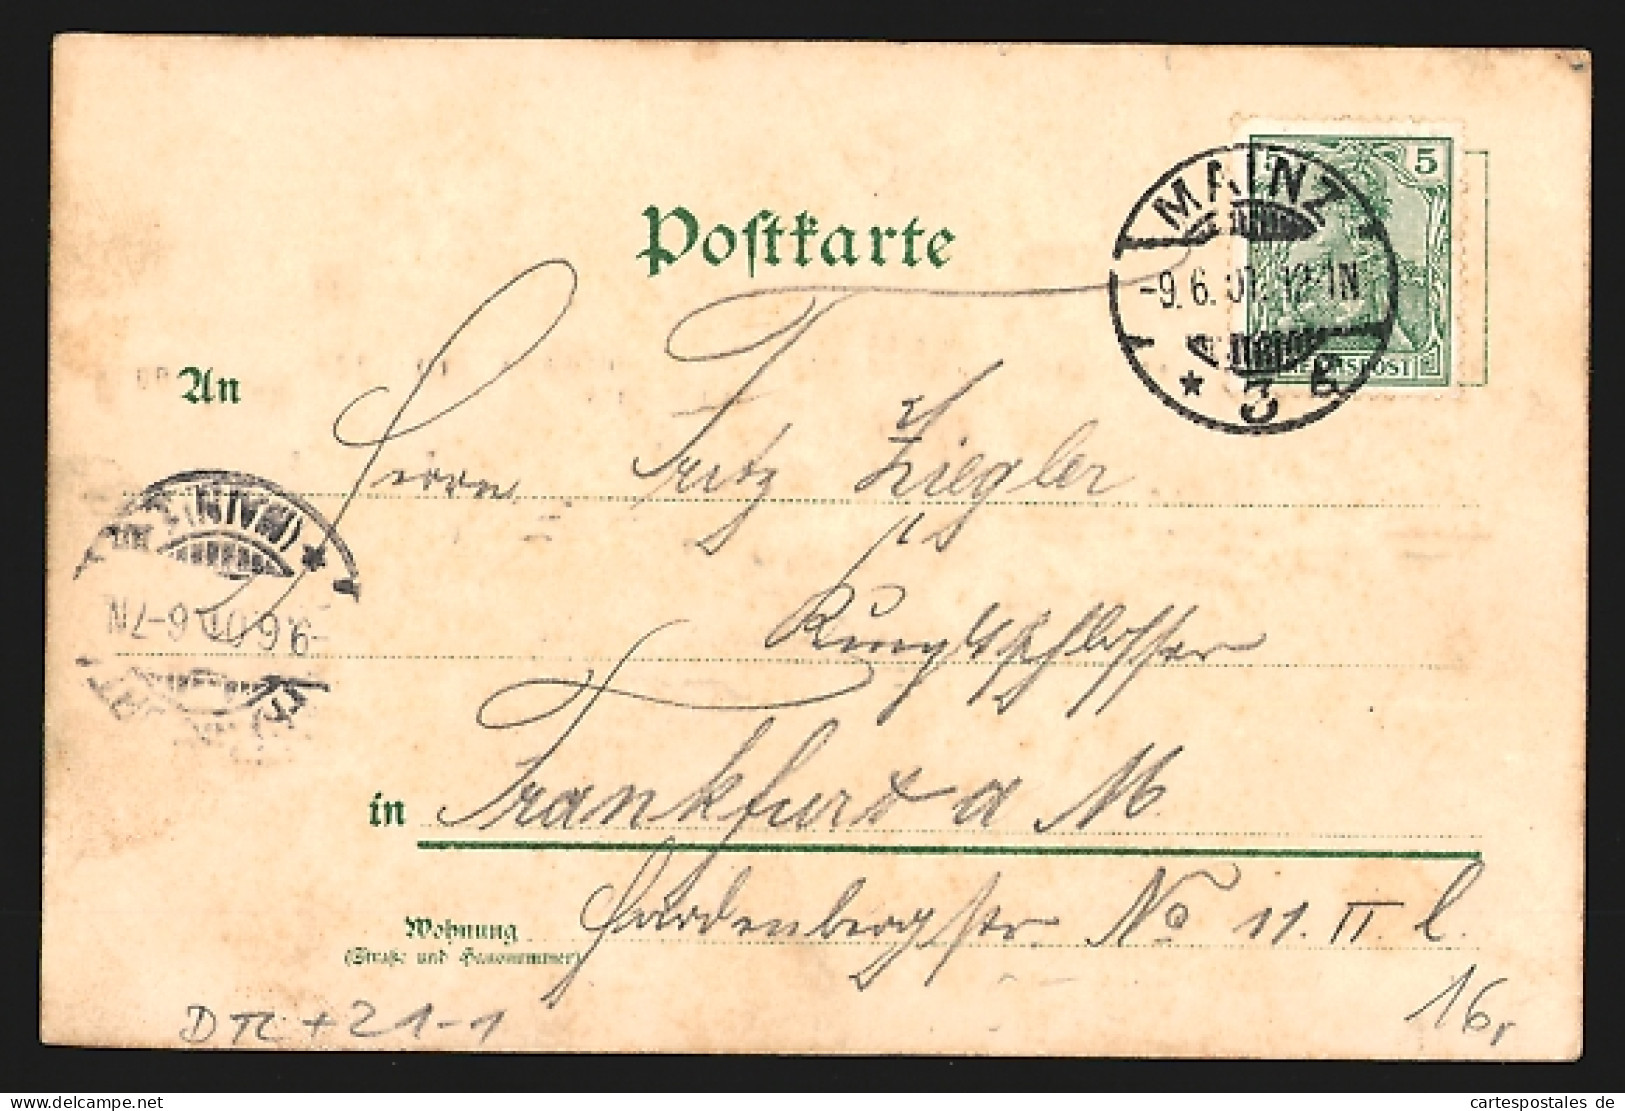 Postkarte
MAINZ
-9.6.01. 12-1N
* 3 B
5
REICHSPOST
An
Herrn Fritz Ziegler
Kunstschlosser
(MAIN) *
-9.6.01. 6-7N
in Frankfurt a M.
Wohnung Hardenbergstr. No 11. II l.
(Straße und Hausnummer)
+21-1
16,
cartespostales de